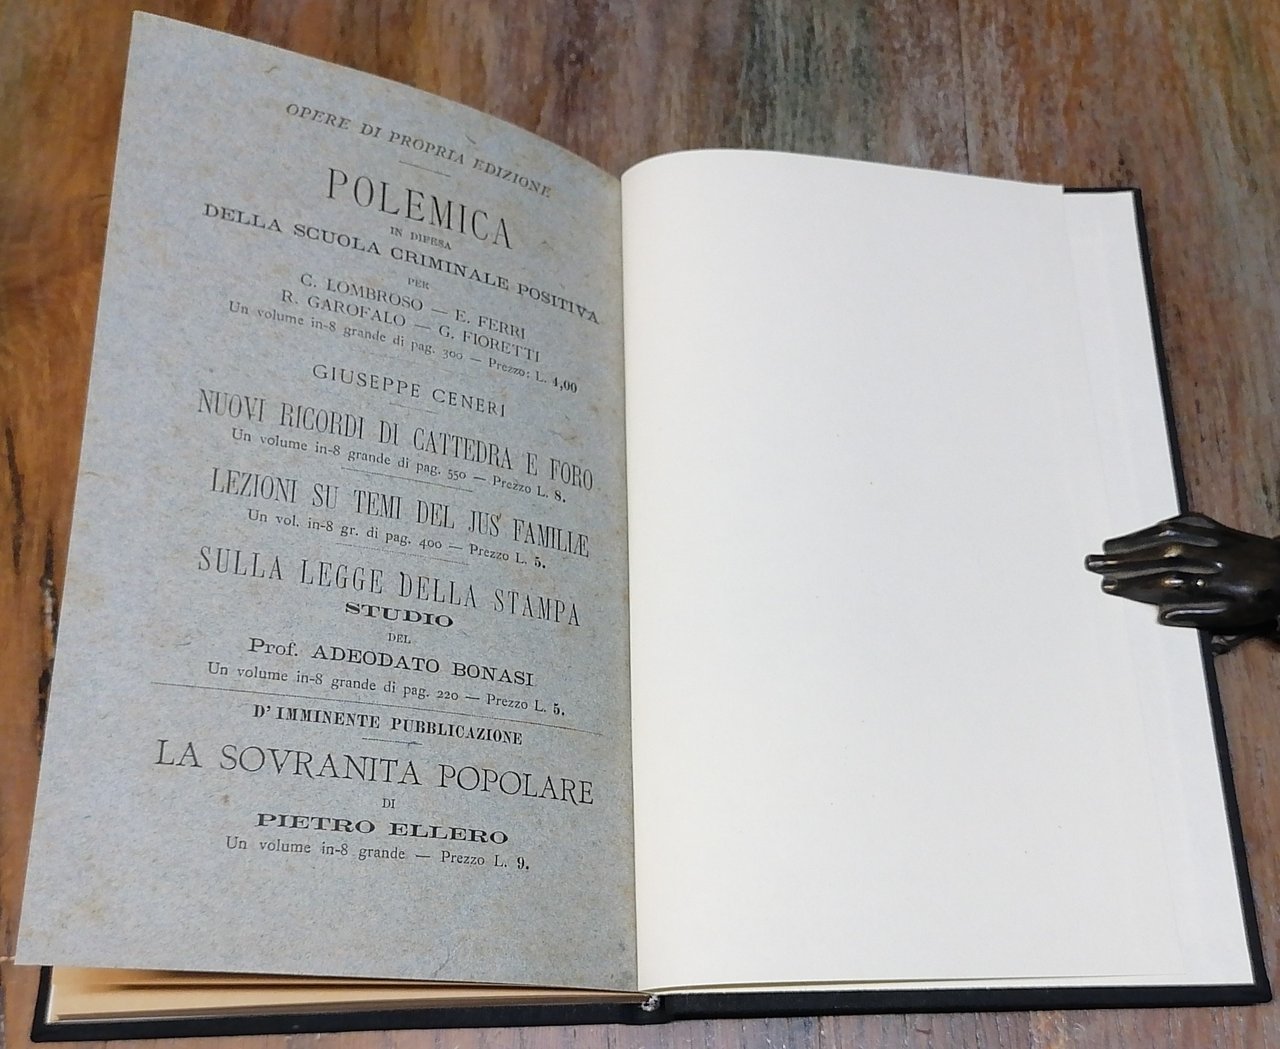 OPERE DI PROPRIA EDIZIONE
POLEMICA
IN DIFESA
DELLA SCUOLA CRIMINALE POSITIVA
PER
C. LOMBROSO — E. FERRI
R. GAROFALO — G. FIORETTI
Un volume in-8 grande di pag. 300 — Prezzo: L. 4,00
GIUSEPPE CENERI
NUOVI RICORDI DI CATTEDRA E FORO
Un volume in-8 grande di pag. 550 — Prezzo L. 8.
LEZIONI SU TEMI DEL JUS FAMILIÆ
Un vol. in-8 gr. di pag. 400 — Prezzo L. 5.
SULLA LEGGE DELLA STAMPA
STUDIO
DEL
Prof. ADEODATO BONASI
Un volume in-8 grande di pag. 220 — Prezzo L. 5.
D' IMMINENTE PUBBLICAZIONE
LA SOVRANITA POPOLARE
DI
PIETRO ELLERO
Un volume in-8 grande — Prezzo L. 9.